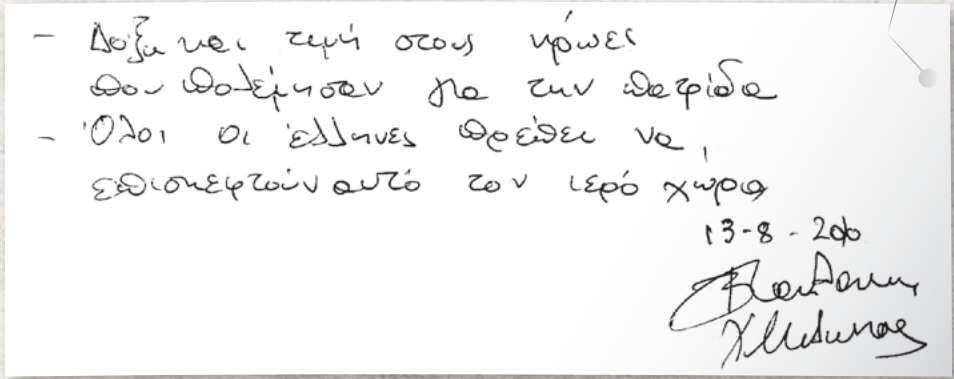 - Δόξα και τιμή στους ήρωες
που πολέμησαν για την πατρίδα
- Όλοι οι έλληνες πρέπει να
επισκεφτούν αυτό τον ιερό χώρο
13-8-